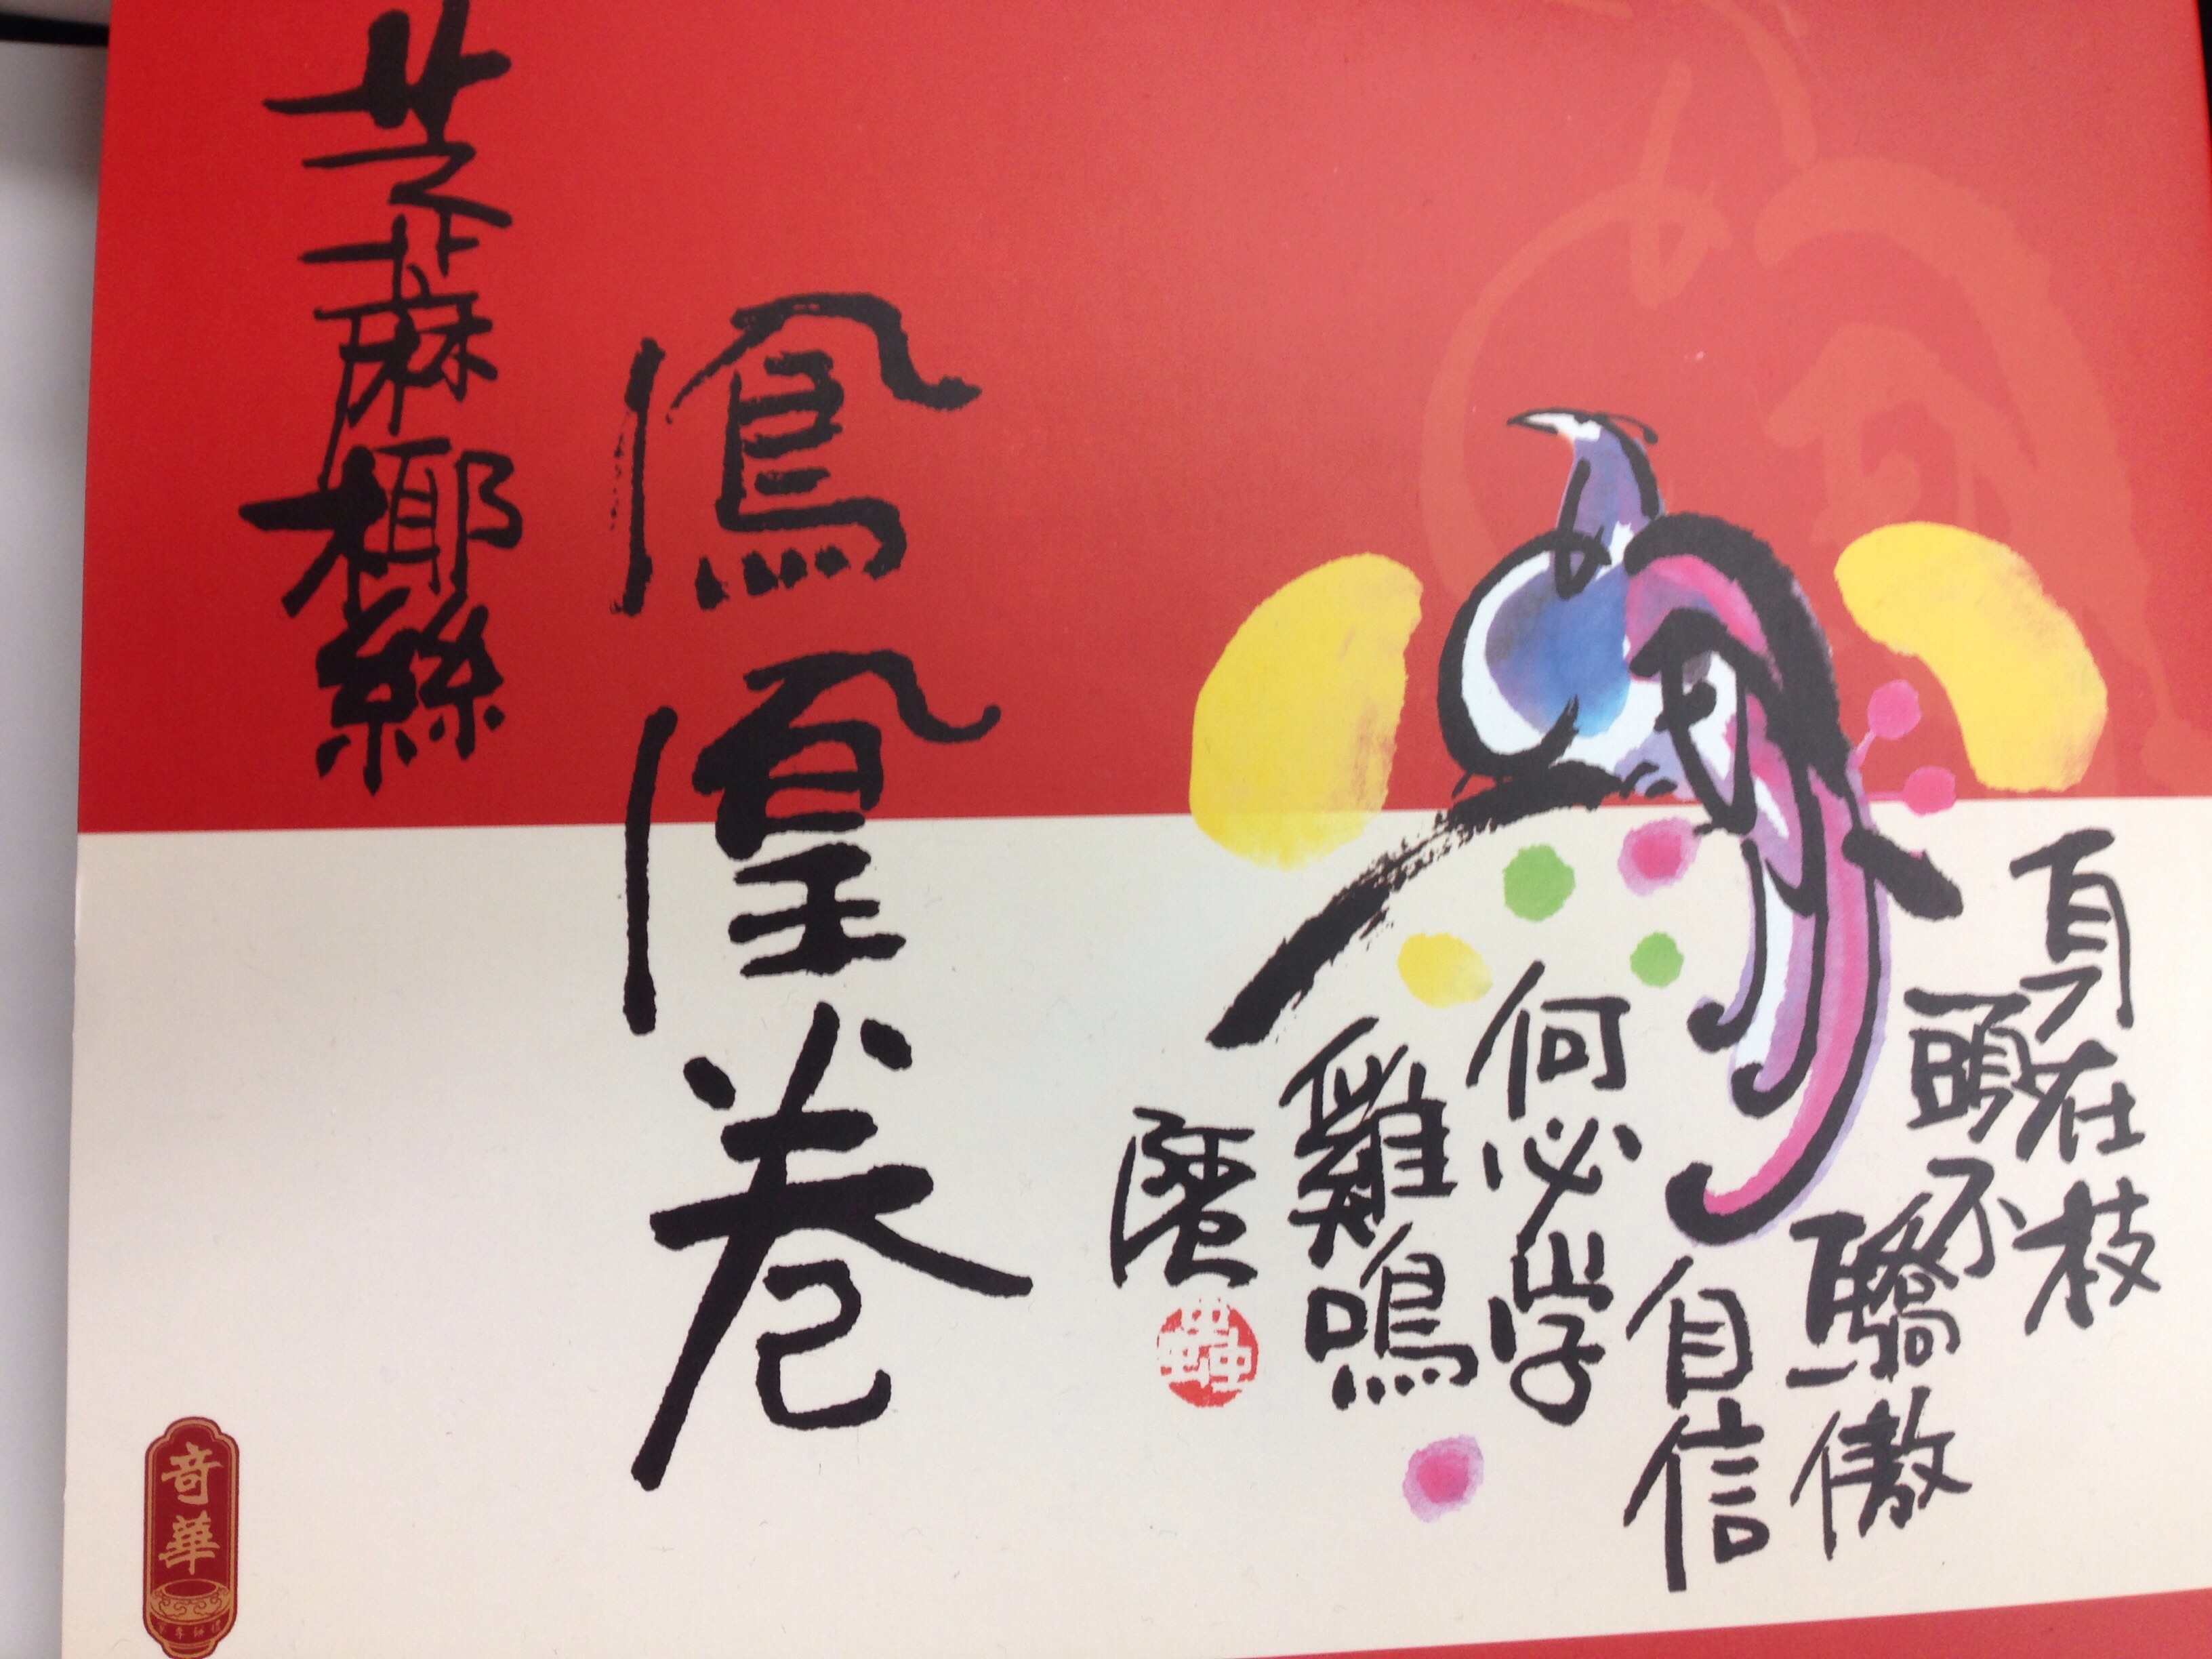 芝蔴椰絲
鳳凰卷
身在枝
頭不
驕傲
自信
何必学
雞鳴
奇華